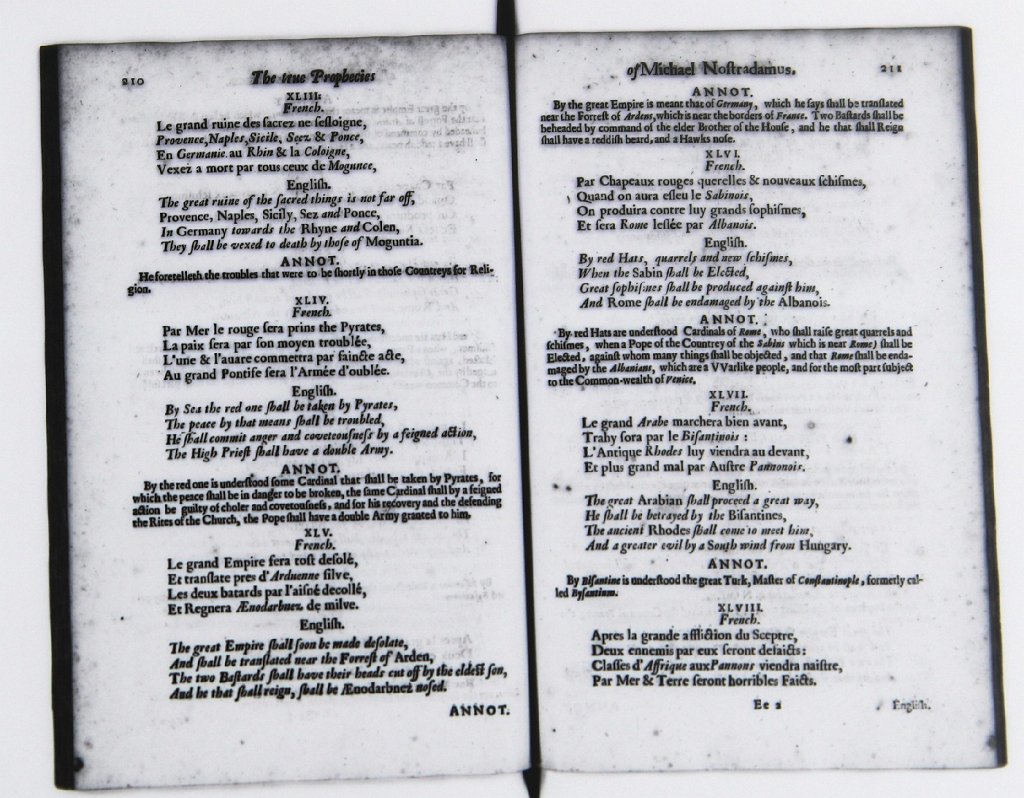 210
The true Prophecies
XLIII:
French.
Le grand ruine des sacrez ne sesloigne,
Provence, Naples, Sicile, Seez & Ponce,
En Germanie au Rhin & la Cologne,
Vexez a mort par tous ceux de Mogunce,
English.
The great ruine of the sacred things is not far off,
Provence, Naples, Sicily, Sez and Ponce,
In Germany towards the Rhyne and Colen,
They shall be vexed to death by those of Moguntia.
ANNOT.
He foretelleth the troubles that were to be shortly in those Countreys for Reli-
gion.
XLIV.
French.
Par Mer le rouge sera prins the Pyrates,
La paix sera par son moyen troublée,
L'une & l'auare commettra par saincte acte,
Au grand Pontife sera l'Armée d'oublée.
English.
By Sea the red one shall be taken by Pyrates,
The peace by that means shall be troubled,
He shall commit anger and covetousness by a feigned action,
The High Priest shall have a double Army.
ANNOT.
By the red one is understood some Cardinal that shall be taken by Pyrates, for
which the peace shall be in danger to be broken, the same Cardinal shall by a feigned
action be guilty of choler and covetousness, and for his recovery and the defending
the Rites of the Church, the Pope shall have a double Army granted to him.
XLV.
French.
Le grand Empire sera tost desolé,
Et translate pres d'Arduenne silve,
Les deux batards par l'aisné decollé,
Et Regnera Ænodarbnez de milve.
English.
The great Empire shall soon be made desolate,
And shall be translated near the Forrest of Arden,
The two Bastards shall have their heads cut off by the eldest son,
And he that shall reign, shall be Ænodarbnez nosed.
ANNOT.
of Michael Nostradamus.
211
ANNOT.
By the great Empire is meant that of Germany, which he says shall be translated
near the Forrest of Ardens, which is near the borders of France. Two Bastards shall be
beheaded by command of the elder Brother of the House, and he that shall Reign
shall have a reddish beard, and a Hawks nose.
XLVI.
French.
Par Chapeaux rouges querelles & nouveaux schismes,
Quand on aura esleu le Sabinois,
On produira contre luy grands sophismes,
Et sera Rome lesiée par Albanois.
English.
By red Hats, quarrels and new schismes,
When the Sabin shall be Elected,
Great sophismes shall be produced against him,
And Rome shall be endamaged by the Albanois.
ANNOT.
By red Hats are understood Cardinals of Rome, who shall raise great quarrels and
schismes, when a Pope of the Countrey of the Sabins which is near Rome) shall be
Elected, against whom many things shall be objected, and that Rome shall be enda-
maged by the Albanians, which are a VVarlike people, and for the most part subject
to the Common-wealth of Venice.
XLVII.
French.
Le grand Arabe marchera bien avant,
Trahy sora par le Bisantinois :
L'Antique Rhodes luy viendra au devant,
Et plus grand mal par Austre Pannonois.
English.
The great Arabian shall proceed a great way,
He shall be betrayed by the Bisantines,
The ancient Rhodes shall come to meet him,
And a greater evil by a South wind from Hungary.
ANNOT.
By Bisantine is understood the great Turk, Master of Constantinople, formerly cal-
led Bysantium.
XLVIII.
French.
Apres la grande affliction du Sceptre,
Deux ennemis par eux seront defaicts:
Classes d'Affrique aux Pannons viendra naistre,
Par Mer & Terre seront horribles Faicts.
Ee 2
English.